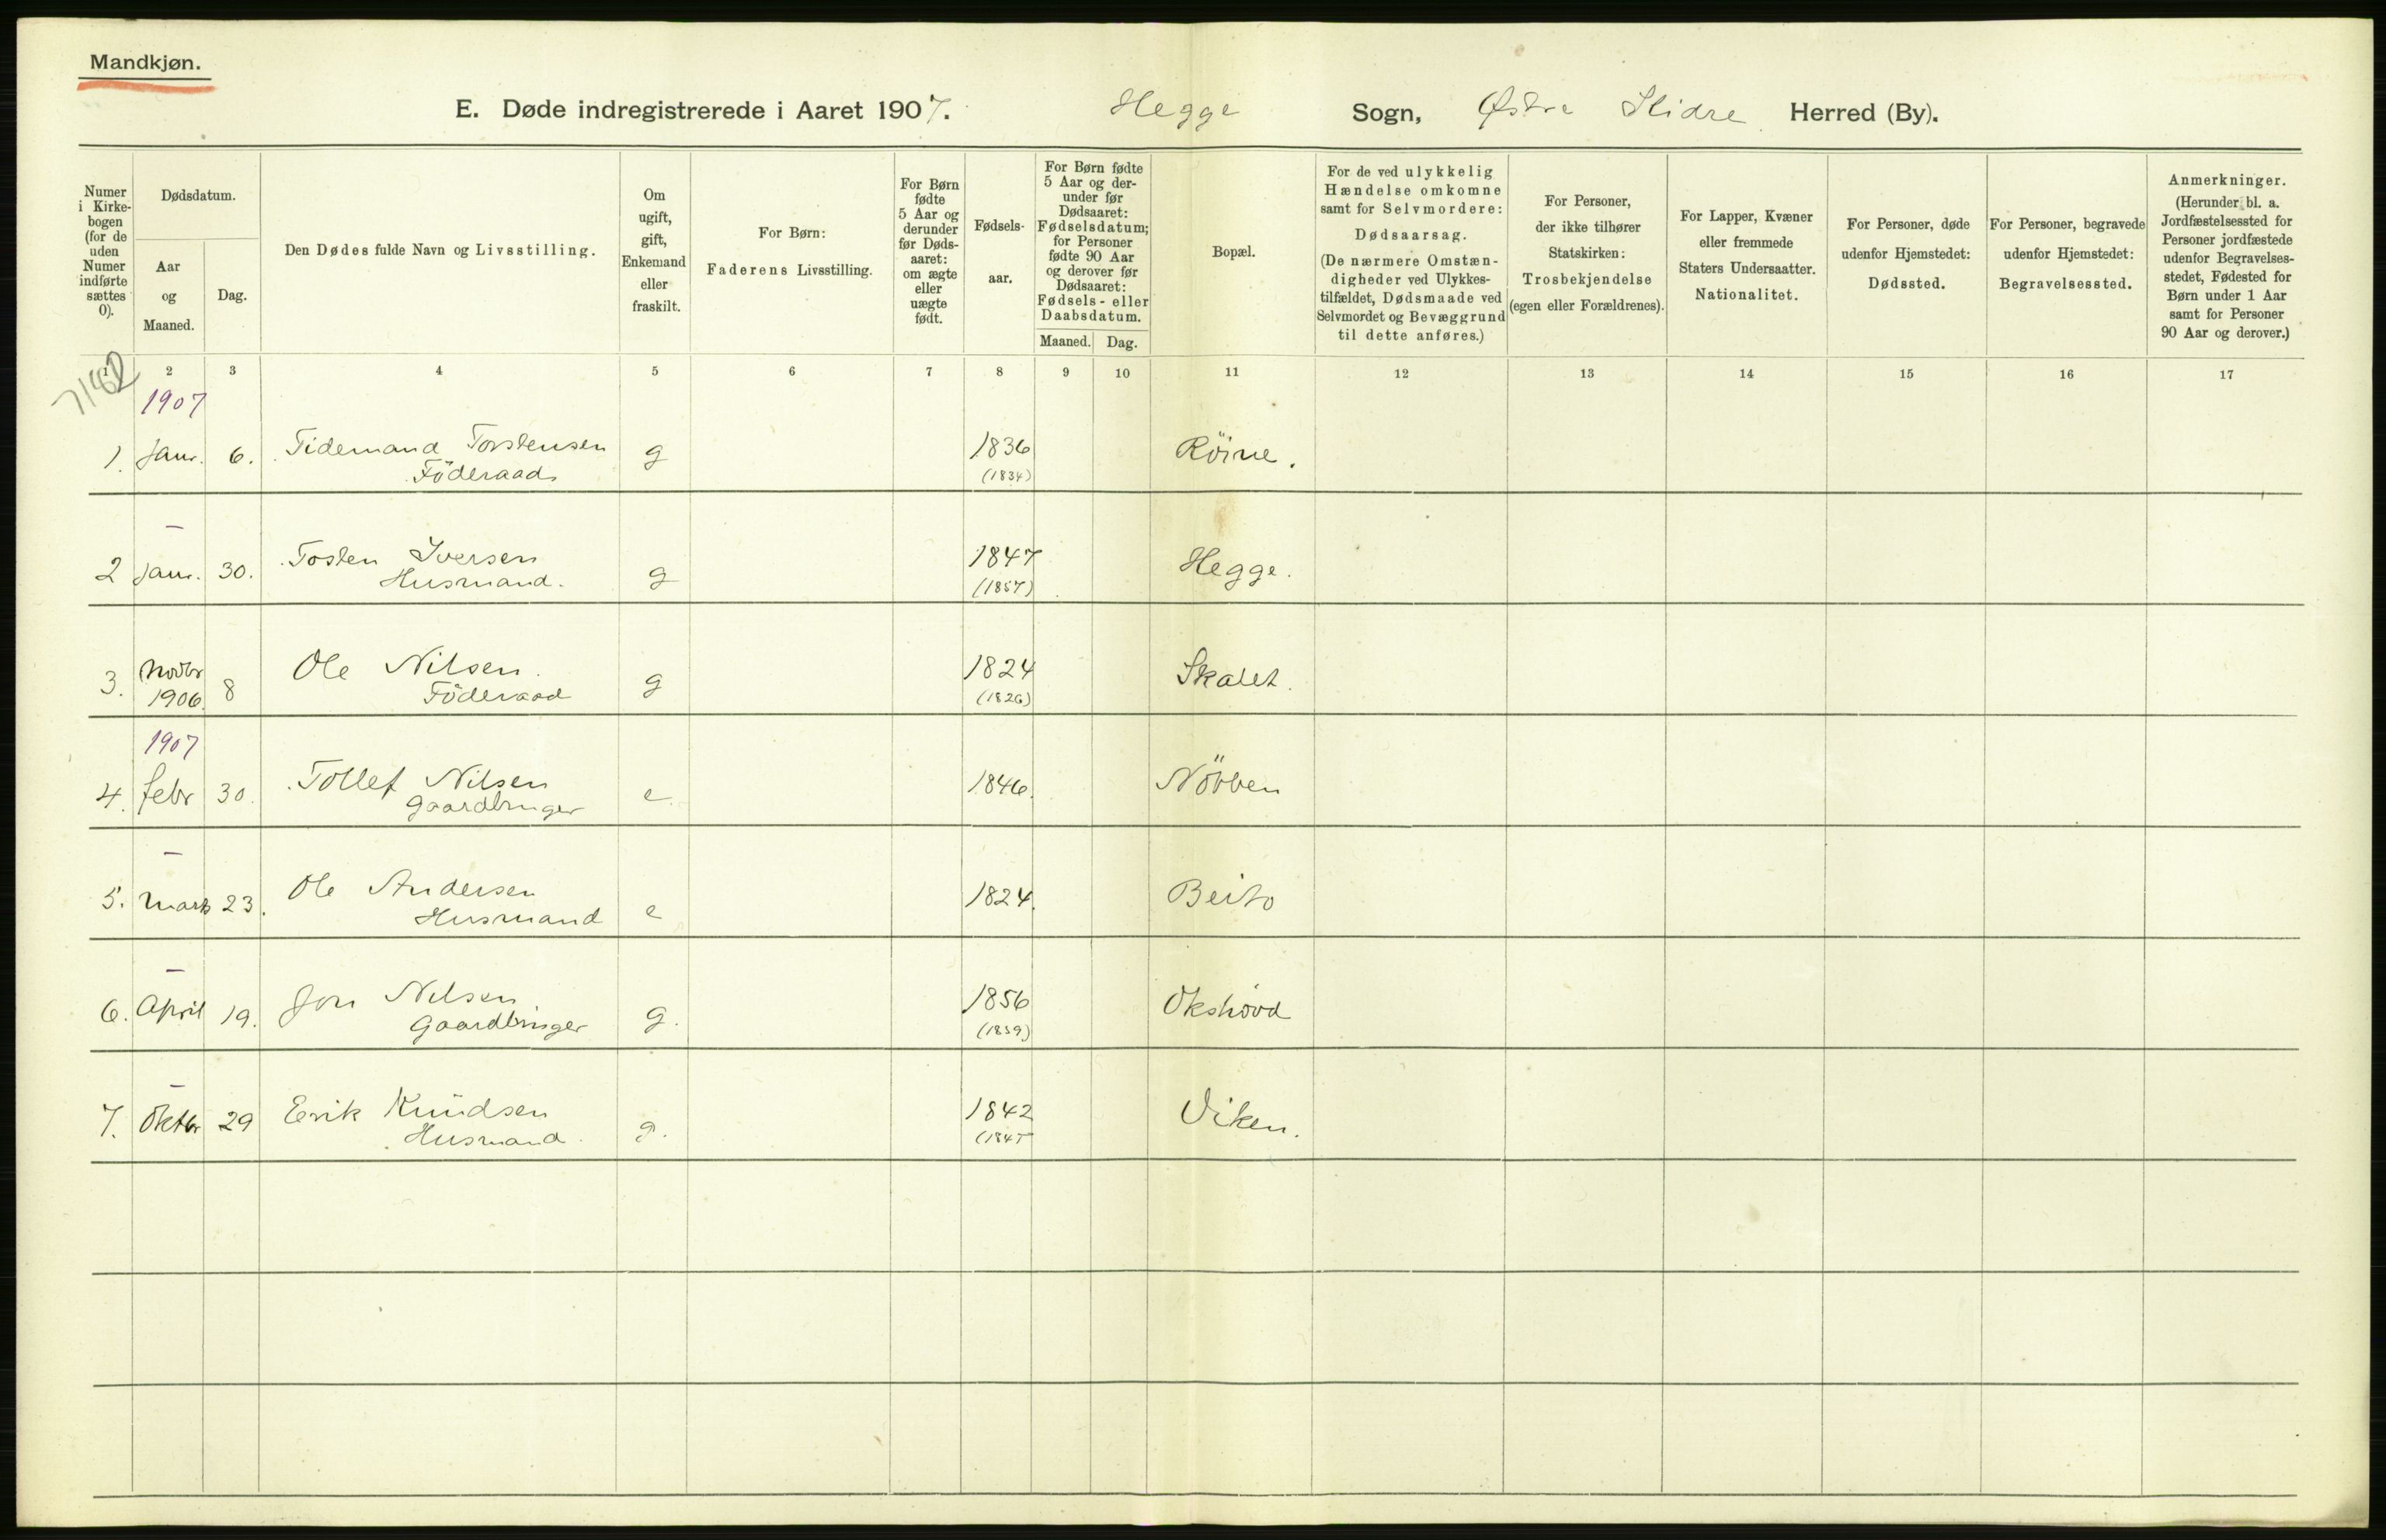 Mandkjøn.
E. Døde indregistrerede i Aaret 1907. Hegge Sogn, Østre Slidre Herred (By).
Numer i Kirke-bogen (for de uden Numer indførte sættes 0).
Dødsdatum.
Aar og Maaned.
Dag.
Den Dødes fulde Navn og Livsstilling.
Om ugift, gift, Enkemand eller fraskilt.
For Børn: Faderens Livsstilling.
For Børn fødte 5 Aar og derunder før Døds-aaret: om ægte eller uægte født.
Fødsels-aar.
For Børn fødte 5 Aar og der-under før Dødsaaret: Fødselsdatum; for Personer fødte 90 Aar og derover før Dødsaaret: Fødsels- eller Daabsdatum.
Maaned. Dag.
Bopæl.
For de ved ulykkelig Hændelse omkomne samt for Selvmordere: Dødsaarsag. (De nærmere Omstæn-digheder ved Ulykkes-tilfældet, Dødsmaade ved Selvmordet og Bevæggrund til dette anføres.)
For Personer, der ikke tilhører Statskirken: Trosbekjendelse (egen eller Forældrenes).
For Lapper, Kvæner eller fremmede Staters Undersaatter. Nationalitet.
For Personer, døde udenfor Hjemstedet: Dødssted.
For Personer, begravede udenfor Hjemstedet: Begravelsessted.
Anmerkninger. (Herunder bl. a. Jordfæstelsessted for Personer jordfæstede udenfor Begravelses-stedet, Fødested for Børn under 1 Aar samt for Personer 90 Aar og derover.)
1 2 3 4 5 6 7 8 9 10 11 12 13 14 15 16 17
1907
1. Janr. 6. Tidemand Torstensen g 1836 Röine.
Föderaads (1834)
–
2 Janr. 30. Tosten Iversen g 1847 Hegge.
Husmand. (1857)
3. Novbr 1906. 8 Ole Nilsen. g 1824 Skalet.
Föderaad (1826)
1907
4. febr 30. Tollef Nilsen e. 1846. Növben
Gaardbruger
–
5. Marts 23. Ole Andersen e 1824. Beito
Husmand
–
6. April 19. Jon Nilsen g. 1856 Okshovd
Gaardbruger (1859)
–
7. Oktbr 29 Erik Knudsen g. 1842 Viken.
Husmand. (1845